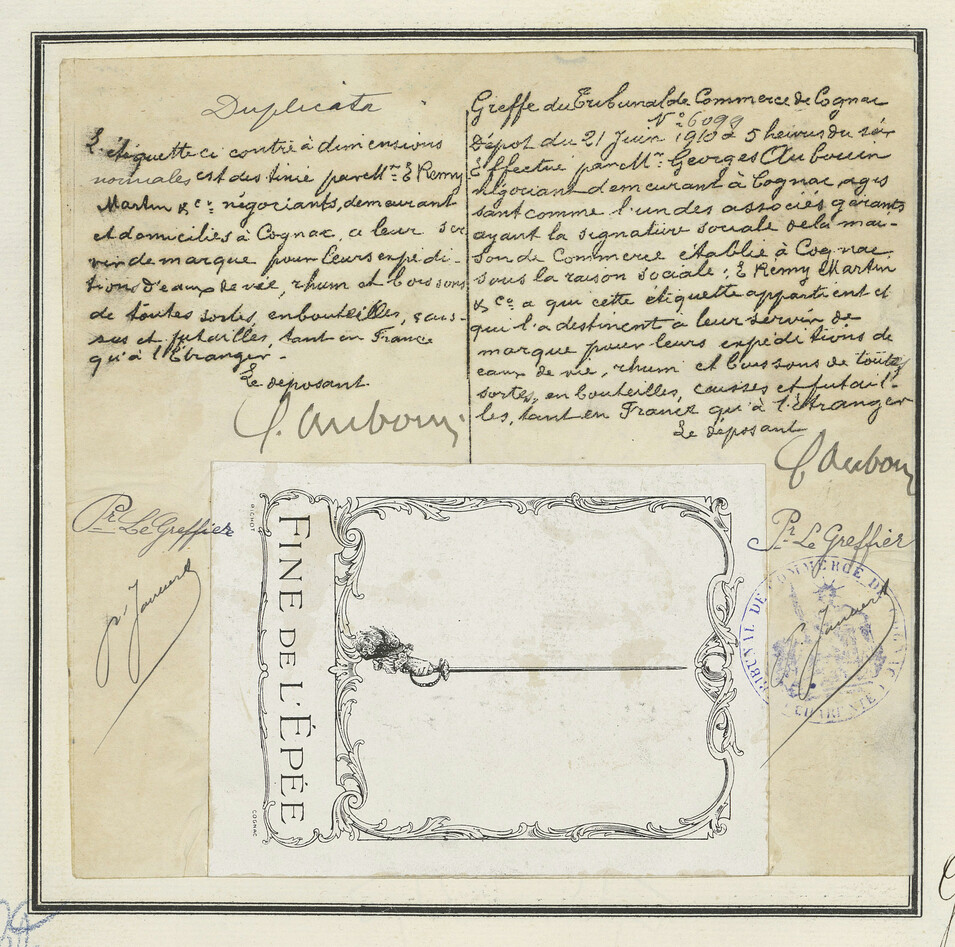 Duplicata
L'étiquette ci contre à dimensions
normales est destinée par Mrs E Remy
Martin & Co négociants, demeurant
et domiciliés à Cognac, a leur ser
vir de marque pour leurs expédi-
tions d'eaux de vie, rhum et boissons
de toutes sortes, en bouteilles, cais-
ses et futailles, tant en France
qu'à l'Etranger.
Le déposant
Pr Le Greffier
Greffe du Tribunal de Commerce de Cognac
No 6099
Dépot du 21 Juin 1910 à 5 heures du soir
Effectué par Mr Georges Aubouin
négociant demeurant à Cognac, agis
sant comme l'un des associés gérants
ayant la signature sociale de la mai-
son de Commerce établie à Cognac
sous la raison sociale: E Rémy Martin
& Co a qui cette étiquette appartient et
qui l'a destinent à leur servir de
marque pour leurs expéditions de
eaux de vie, rhum et boissons de toutes
sortes, en bouteilles, caisses et futail-
les, tant en France qu'à l'étranger
Le déposant
Pr Le Greffier
TRIBUNAL DE COMMERCE DE COGNAC
CHARENTE
FINE DE L'ÉPÉE
PICHOT
COGNAC